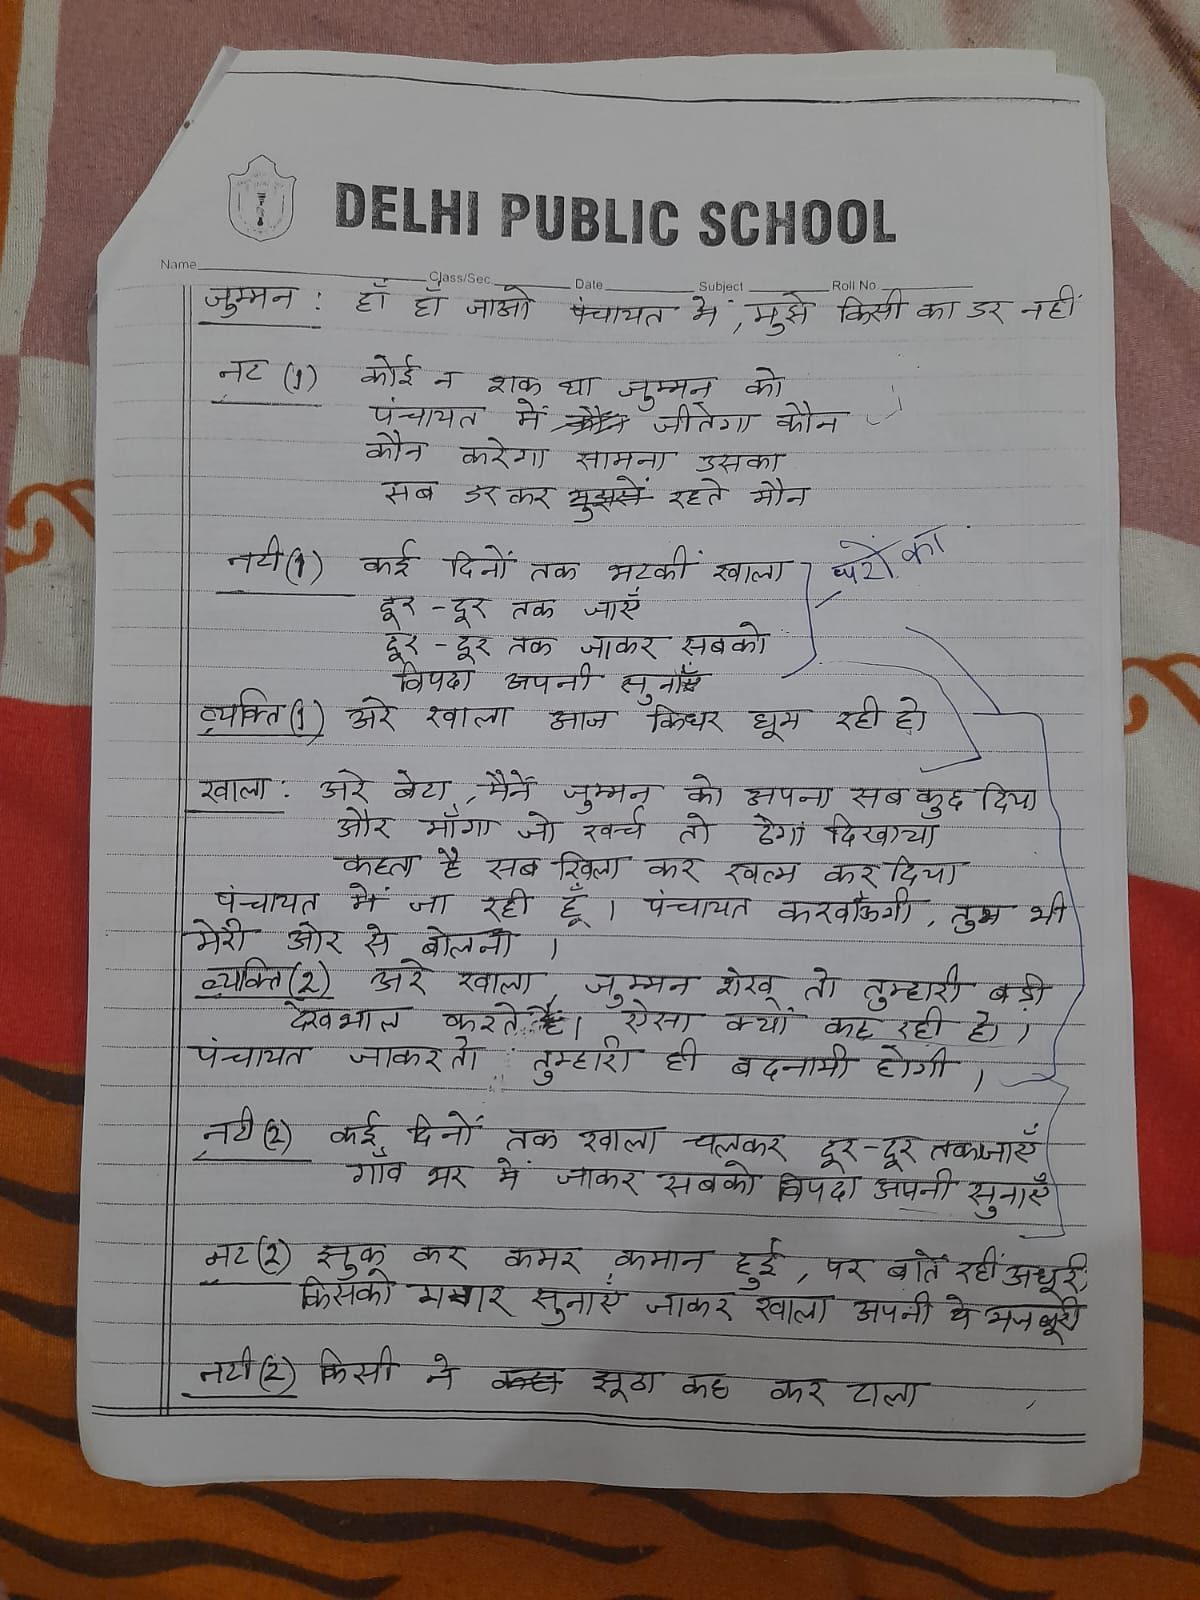 DELHI PUBLIC SCHOOL
Name Class/Sec. Date Subject Roll No.
जुम्मन : हाँ हाँ जाओ पंचायत में, मुझे किसी का डर नहीं
नट (1) कोई न शक था जुम्मन को
पंचायत में कौन जीतेगा कौन
कौन करेगा सामना उसका
सब डर कर मुझसे रहते मौन
नटी (1) कई दिनों तक भटकी खाला घरों का
दूर-दूर तक जाएँ
दूर-दूर तक जाकर सबको
विपदा अपनी सुनाएँ
व्यक्ति (1) अरे खाला आज किधर घूम रही हो
खाला : अरे बेटा, मैनें जुम्मन को अपना सब कुछ दिया
और माँगा जो खर्च तो ठेंगा दिखाया
कहता है सब खिला कर खत्म कर दिया
पंचायत में जा रही हूँ। पंचायत करवाऊंगी, तुम भी
मेरी ओर से बोलना।
व्यक्ति (2) अरे खाला, जुम्मन शेख तो तुम्हारी बड़ी
देखभाल करते हैं। ऐसा क्यों कह रही हो।
पंचायत जाकर तो तुम्हारी ही बदनामी होगी।
नटी (2) कई दिनों तक खाला चलकर दूर-दूर तक जाएँ
गाँव भर में जाकर सबको विपदा अपनी सुनाएँ
नट (2) झुक कर कमर कमान हुई, पर बातें रहीं अधूरी
किसको सुनाएँ जाकर खाला अपनी ये मजबूरी
नटी (2) किसी ने कहा झूठा कह कर टाला